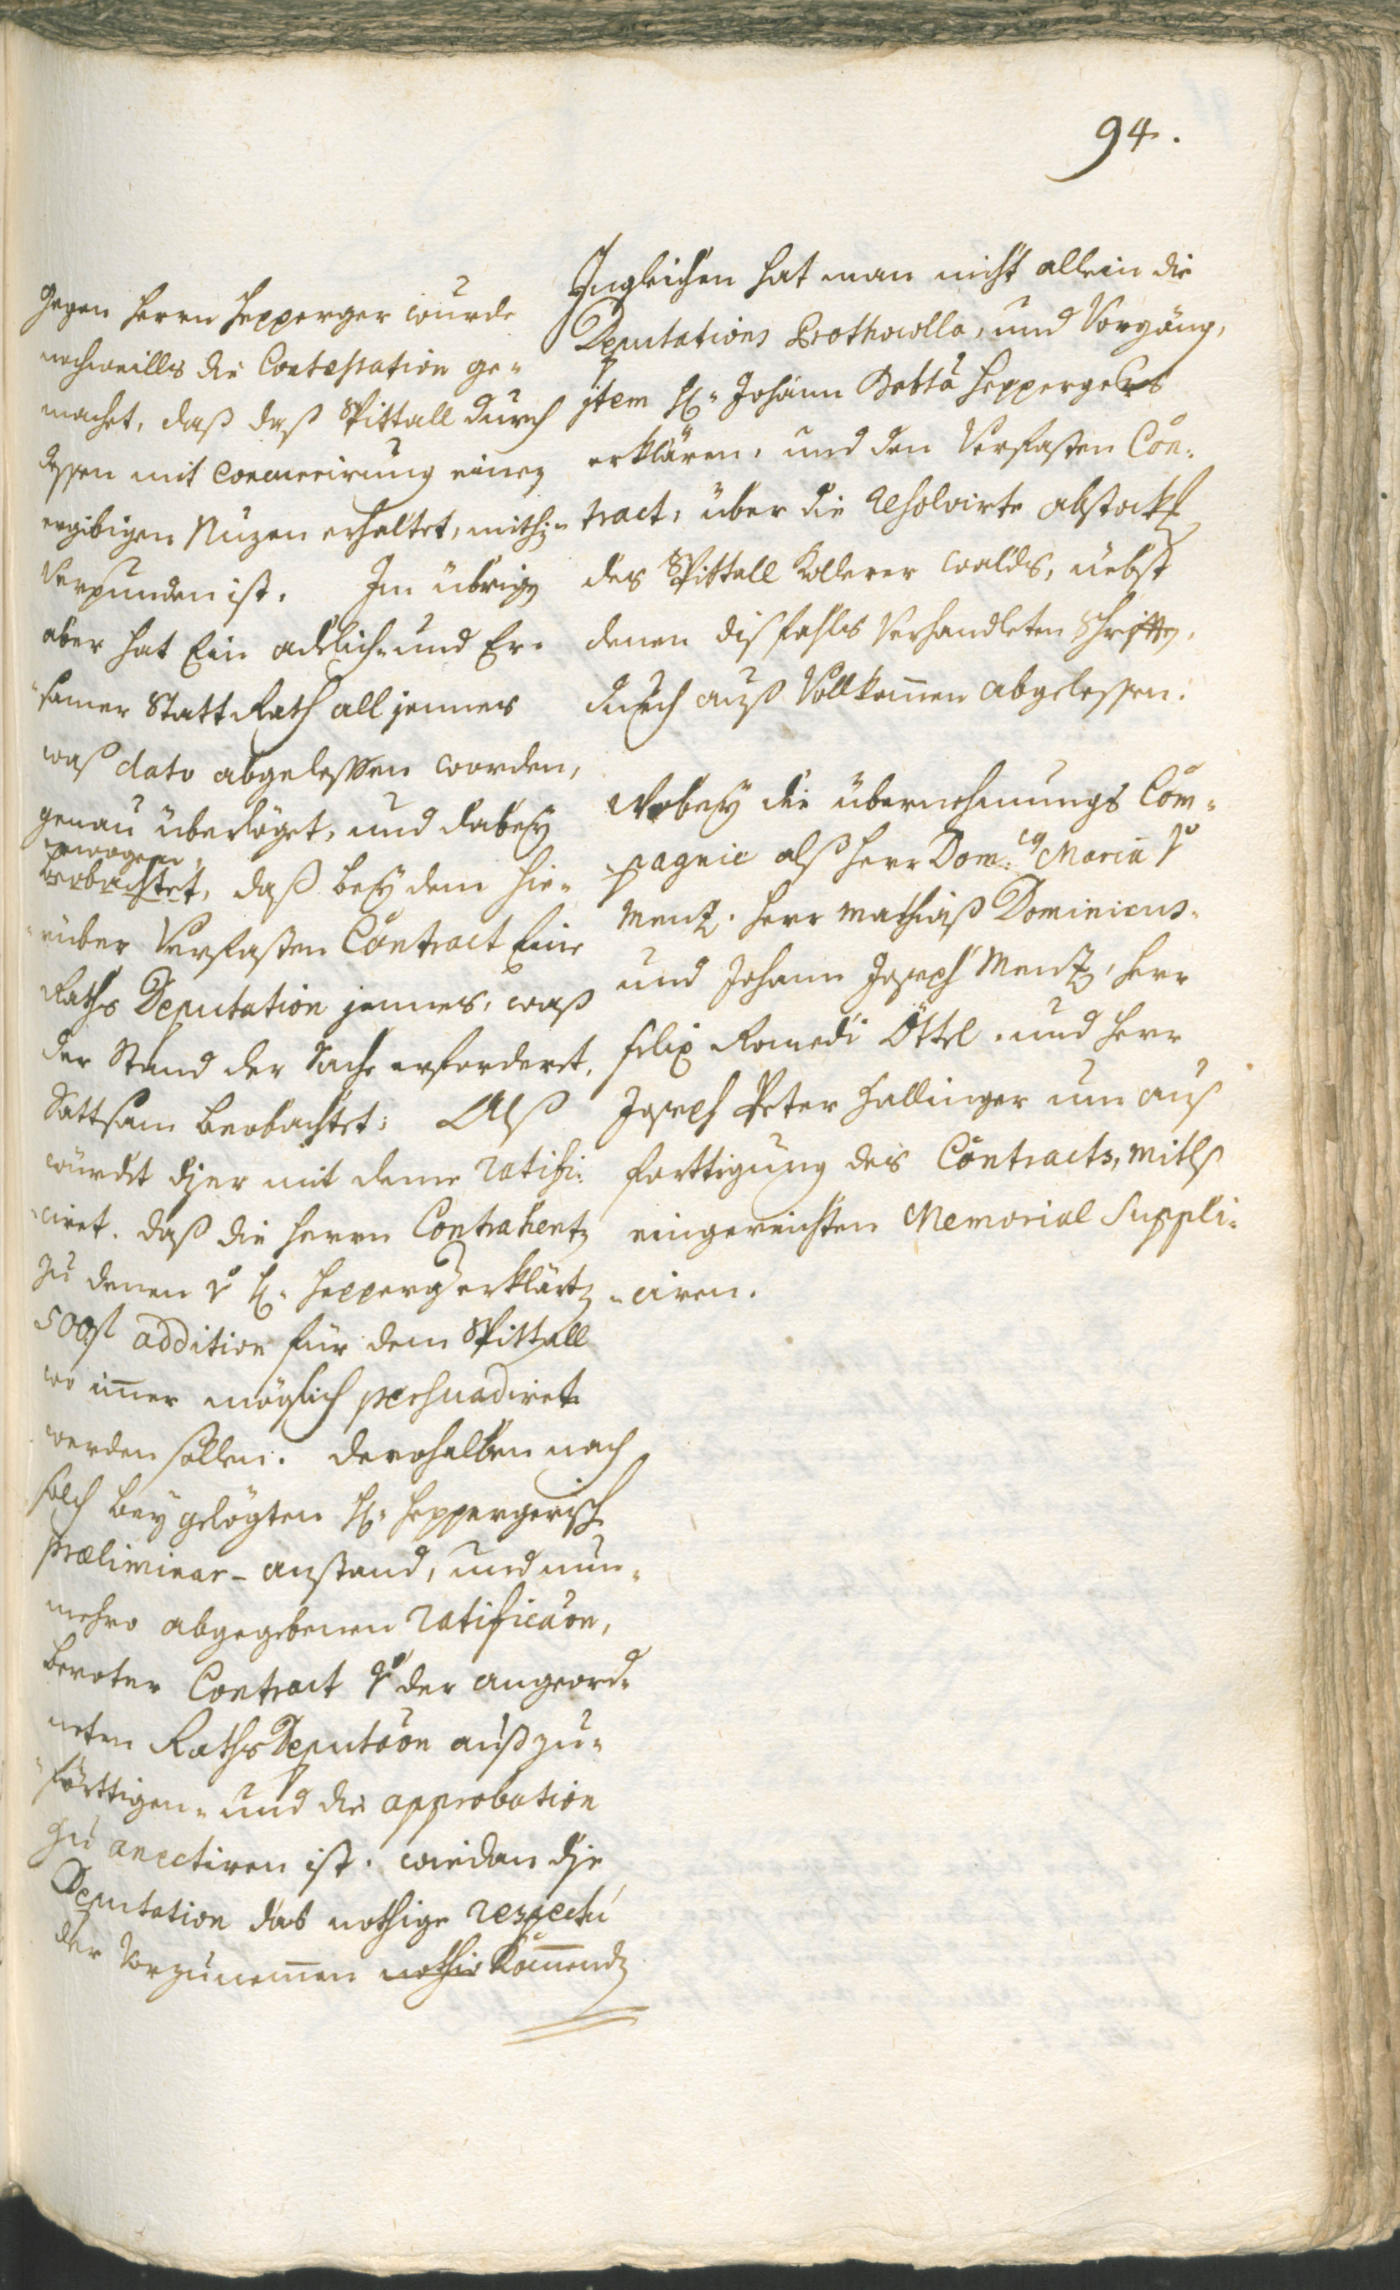 94.
Gegen Herrn Hepperger wurde
nochmeills die Contestation ge=
machet, daß daß Spittall durch
dessen mit concurrirung einen
ergibigen Nuzen erhaltet, mithin
verpunden ist. Im übrigen
aber hat Ein adelich- und Er=
samer Statt Rath all jennes
waß dato abgelessen worden,
genau überlöget, und dabey
erwogen,
beobachtet, daß bey dem hie=
rüber verfasten Contract Eine
Raths Deputation jennes, waß
der Stand der Sache erforderet,
Sattsam beobachtet: Alß
würdet diser mit deme ratifi=
ciret, daß die Herrn Contrahenten
zu denen von H. Hepperger erklärten
500 f addition für dem Spittall
wo immer möglich persuadiret
werden sollen. Derohalben nach
solch beygelögten H. Heppergerischen
præliminar-anstand, und nun=
mehro abgegebenen ratification,
beroter Contract von der angeord=
neten Raths Deputation außzu=
förttigen= und die approbation
zu anectiren ist. wie dan die
Deputation das nothige respectu
der Vorzunemmen nothig Kommenden
Ingleichen hat man nicht allein die
Deputations Prothocolla, und Vorgäng,
item H. Johann Bebta Heppergers
erklären, und den Verfasten Con=
tract, über die resolvirte abstockh
des Spittall Kollerer walds, nebst
denen disfahls Verhandleten Schrifften,
durch auß Vollkommen abgelessen.
Wobey die übernehmungs Com=
pagnie alß Herr Dom:co Maria von
Mentz, Herr Mathias Dominicus=
und Johann Joseph Mentz, Herr
Felix Romedi Öttel, und Herr
Joseph Peter Hallinger um auß
ferttigung des Contracts, mitls
eingereichten Memorial Suppli=
ciren.